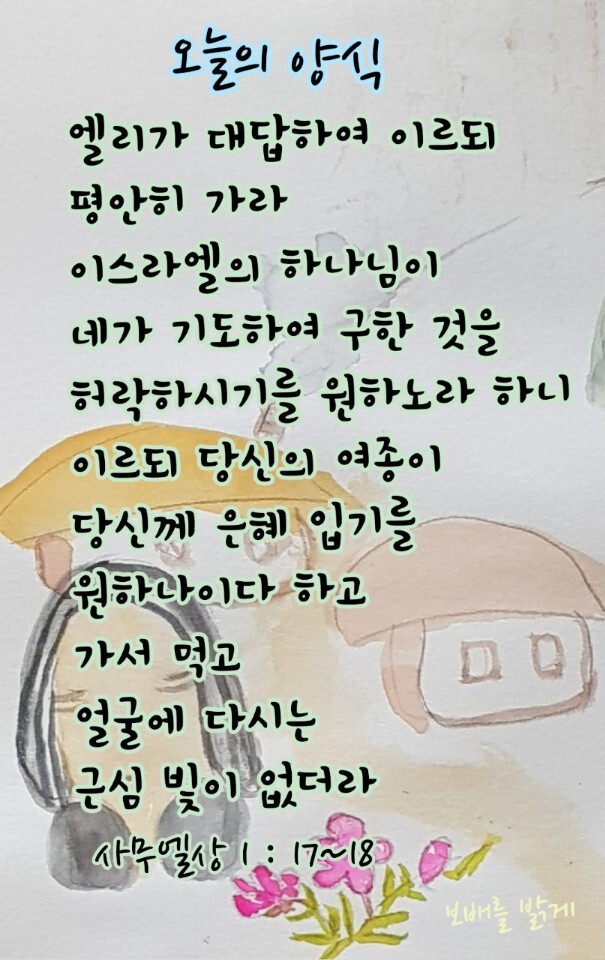 오늘의 양식
엘리가 대답하여 이르되
평안히 가라
이스라엘의 하나님이
네가 기도하여 구한 것을
허락하시기를 원하노라 하니
이르되 당신의 여종이
당신께 은혜 입기를
원하나이다 하고
가서 먹고
얼굴에 다시는
근심 빛이 없더라
사무엘상 1 : 17~18
보배를 밝게